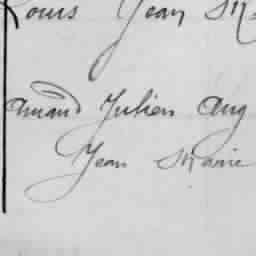 Louis Jean M
Amand Julien Aug
Jean Marie